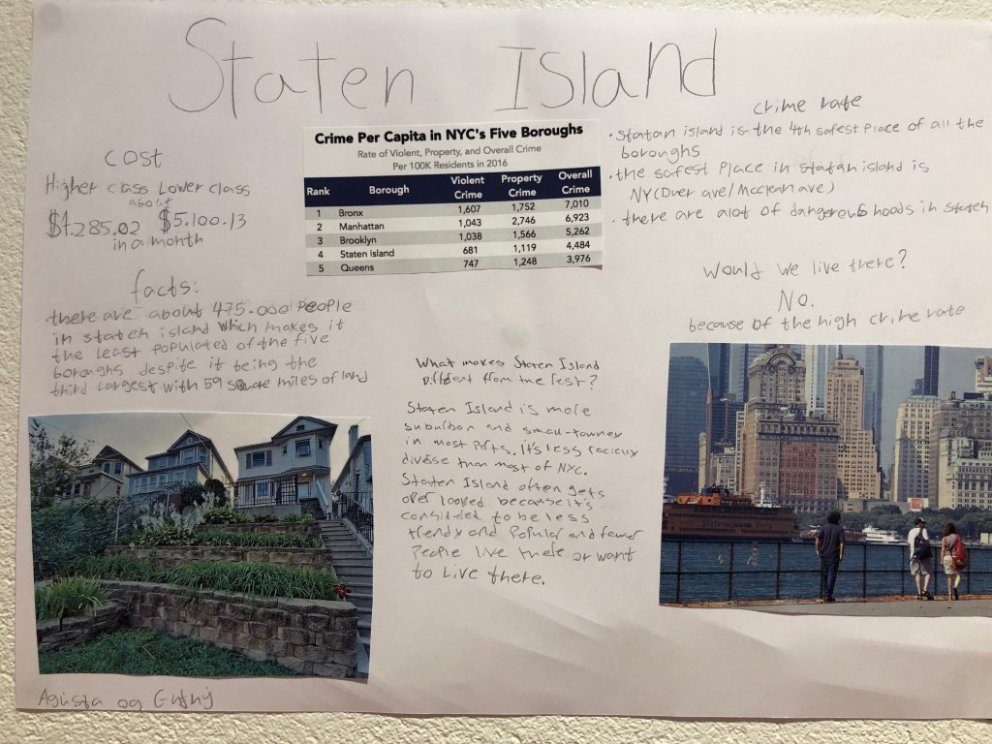 Staten Island
cost
Higher class Lower class
about
$7.285.02 $5.100.13
in a month
facts:
there are about 475.000 people
in staten island which makes it
the least populated of the five
boroughs despite it being the
third largest with 59 square miles of land
Crime Per Capita in NYC's Five Boroughs
Rate of Violent, Property, and Overall Crime
Per 100K Residents in 2016
Rank Borough Violent Crime Property Crime Overall Crime
1 Bronx 1,607 1,752 7,010
2 Manhattan 1,043 2,746 6,923
3 Brooklyn 1,038 1,566 5,262
4 Staten Island 681 1,119 4,484
5 Queens 747 1,248 3,976
What makes Staten Island
Different from the rest?
Staten Island is more
suburban and small-towney
in most parts. it's less
diverse than most of NYC.
Staten Island often gets
over looked because it's
considered to be less
trendy and Popular and fewer
People live there or want
to live there.
crime rate
• Statan island is the 4th safest place of all the
boroughs
• the safest place in statan island is
NY (Dver ave/Mcclean ave)
• there are alot of dangerous hoods in staten
Would we live there?
No.
because of the high crime rate
Agústa og